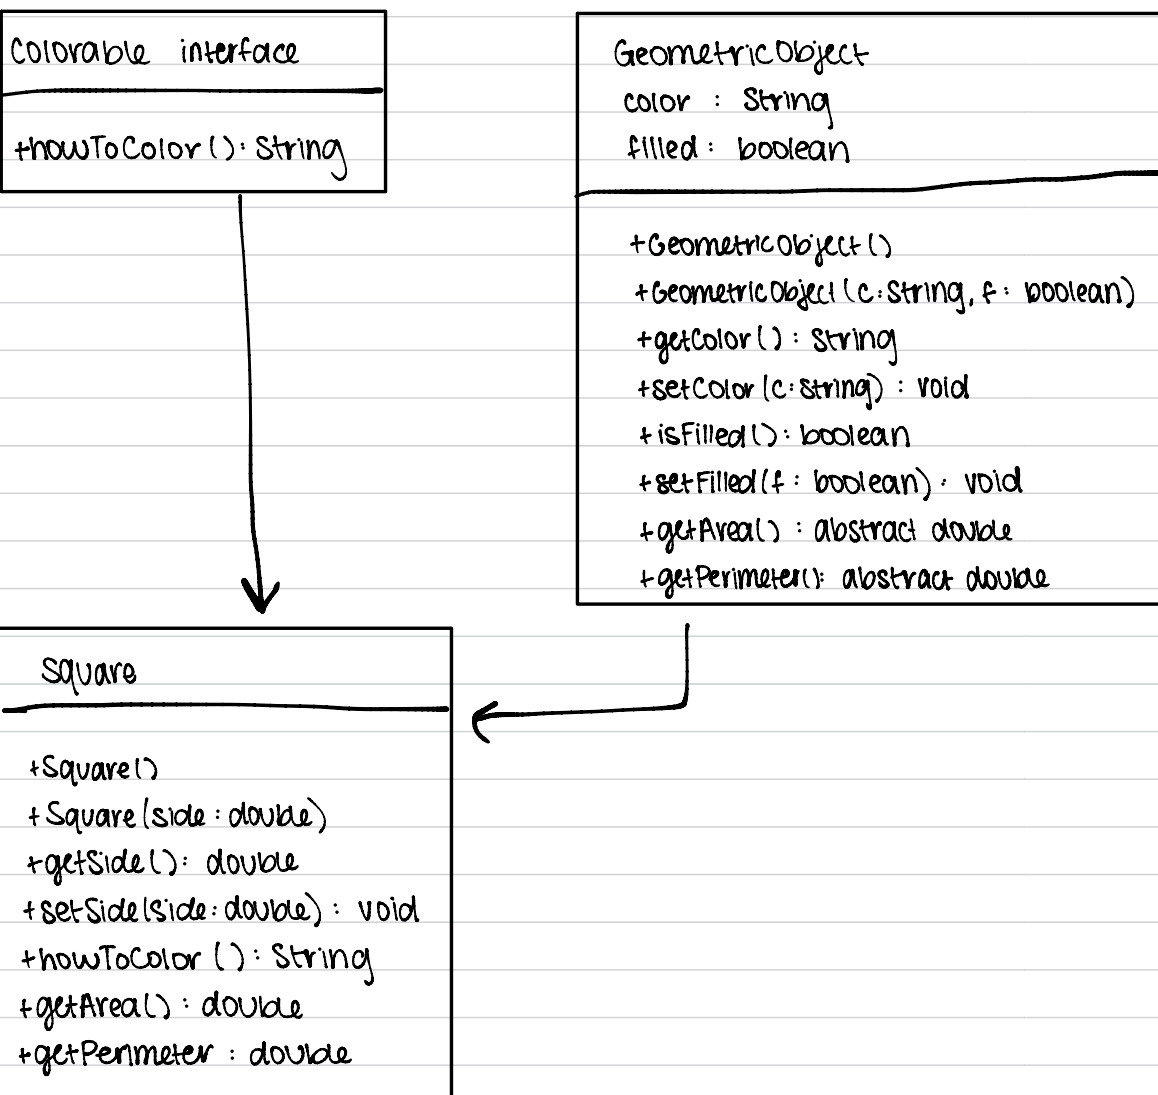 Colorable interface
+howToColor(): String
GeometricObject
color : String
filled : boolean
+GeometricObject()
+GeometricObject(c:String, f: boolean)
+getColor() : String
+setColor(c:String) : void
+isFilled(): boolean
+setFilled(f: boolean): void
+getArea() : abstract double
+getPerimeter(): abstract double
Square
+Square()
+Square(side:double)
+getSide(): double
+setSide(side:double) : void
+howToColor (): String
+getArea() : double
+getPerimeter : double